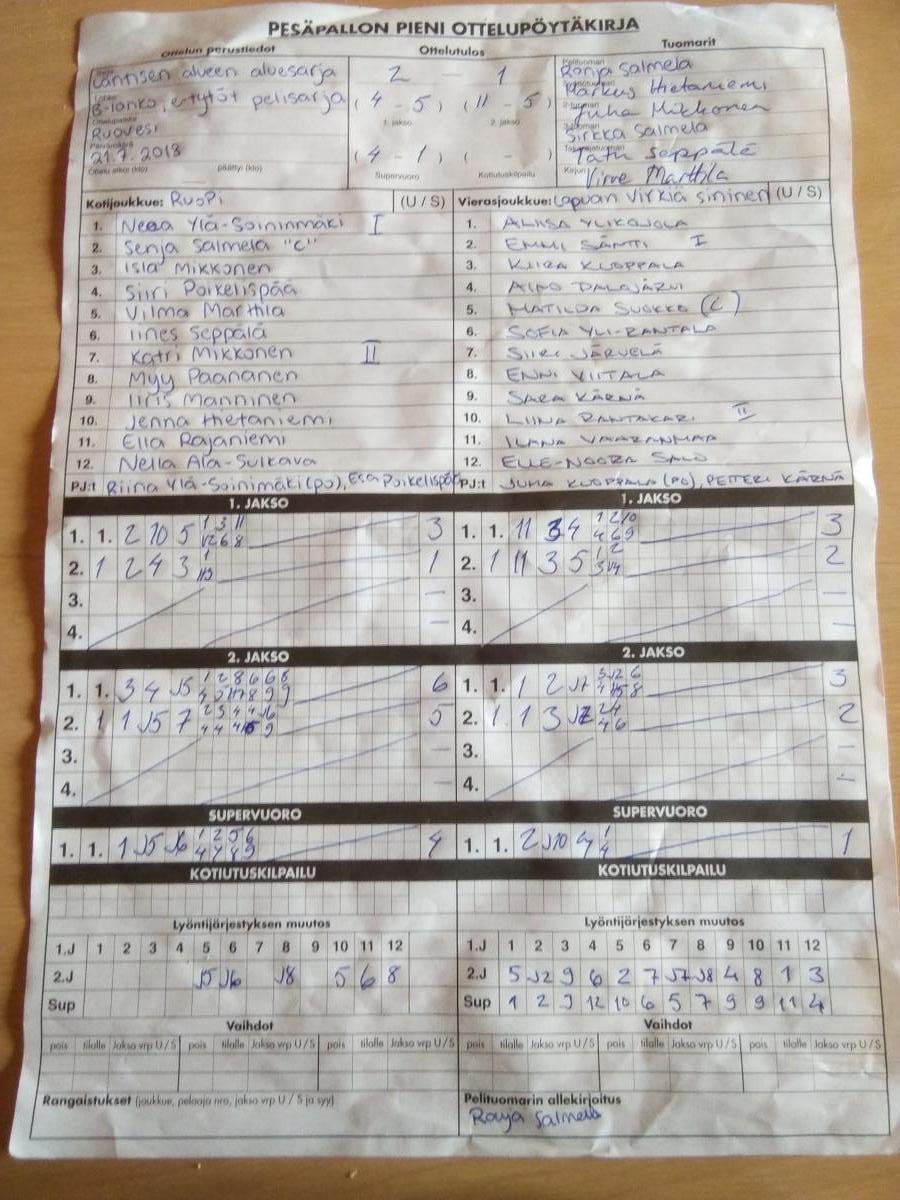 PESÄPALLON PIENI OTTELUPÖYTÄKIRJA
Ottelun perustiedot Ottelutulos Tuomarit
Läntisen alueen aluesarja 2 - 1 Pelituomari Ronja Salmela
B-lohko, e-tytöt pelisarja (4 - 5) (11 - 5) Markus Hietaniemi
1. jakso 2. jakso 2-tuomari Juha Mikkonen
Ruovesi Sirkka Salmela
Päivämäärä 21.7. 2018 (4 - 1) ( - ) Takarajatuomari Tatu Seppälä
Ottelu alkoi (klo) päättyi (klo) Supervuoro Kotiutuskilpailu Kirjuri Virve Marttila
Kotijoukkue: RuoPi (U / S) Vierasjoukkue: Lapuan Virkiä sininen (U / S)
1. Neea Ylä-Soininmäki I 1. ALIISA YLIKOJOLA
2. Senja Salmela "C" 2. EMMI SÄNTTI I
3. Isla Mikkonen 3. KIIRA KUOPPALA
4. Siiri Poikelispää 4. AINO PALOJÄRVI
5. Vilma Marttila 5. MATILDA SUOKKO (C)
6. Iines Seppälä 6. SOFIA YLI-RANTALA
7. Katri Mikkonen II 7. SIIRI JÄRVELÄ
8. Myy Paananen 8. ENNI VIITALA
9. Iiris Manninen 9. SARA KÄRNÄ
10. Jenna Hietaniemi 10. LIINA RANTAKARI II
11. Ella Rajaniemi 11. ILANA VAARANMAA
12. Nella Ala-Sulkava 12. ELLE-NOORA SALO
PJ:t Riina Ylä-Soinimäki (PO), Esa Poikelispää PJ:t JUHA KUOPPALA (PO), PETTERI KÄRNÄ
1. JAKSO 1. JAKSO
1. 1. 2 10 5 3 1. 1. 11 3 4 3
2. 1 2 4 3 1 2. 1 11 3 5 2
3. - 3. -
4. - 4. -
2. JAKSO 2. JAKSO
1. 1. 3 4 J5 6 1. 1. 1 2 J7 3
2. 1 1 J5 7 5 2. 1. 1 3 2
3. 3. -
4. - 4. -
SUPERVUORO SUPERVUORO
1. 1. 1 J5 J6 4 1. 1. 2 J10 4 1
KOTIUTUSKILPAILU KOTIUTUSKILPAILU
Lyöntijärjestyksen muutos Lyöntijärjestyksen muutos
1.J 1 2 3 4 5 6 7 8 9 10 11 12 1.J 1 2 3 4 5 6 7 8 9 10 11 12
2.J J5 J6 J8 5 6 8 2.J 5 J2 9 6 2 7 J7 J8 4 8 1 3
Sup Sup 1 2 3 12 10 6 5 7 9 9 11 4
Vaihdot Vaihdot
pois tilalle Jakso vrp U / S pois tilalle Jakso vrp U / S pois tilalle Jakso vrp U / S pois tilalle Jakso vrp U / S pois tilalle Jakso vrp U / S pois tilalle Jakso vrp U / S
Rangaistukset (joukkue, pelaaja nro, jakso vrp U / S ja syy) Pelituomarin allekirjoitus
Ronja Salmela